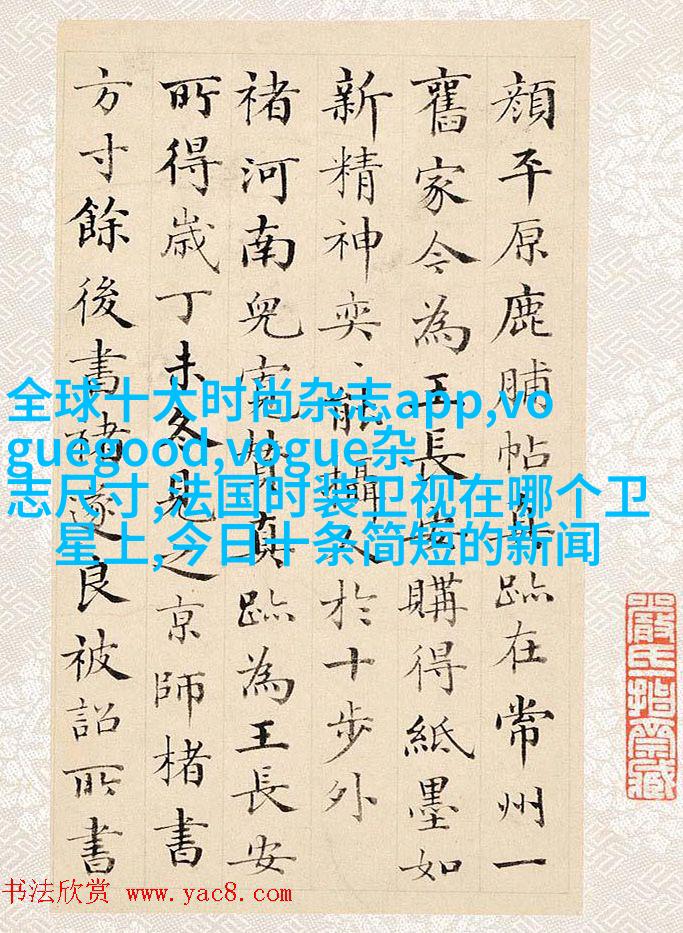 顔平原鹿脯帖真跡在常州一
舊家今為王長安購得紙墨如
新精神奕〻能攝人於十步外
褚河南兒寬贊真跡為王長安
所得歲丁未冬見之京師楮書
方寸餘後書褚遂良被詔所書
全球十大时尚杂志app,vo
guegood,vogue杂
志尺寸,法国时装卫视在哪个卫
星上,今日十条简短的新闻
书法欣赏 www.yac8.com